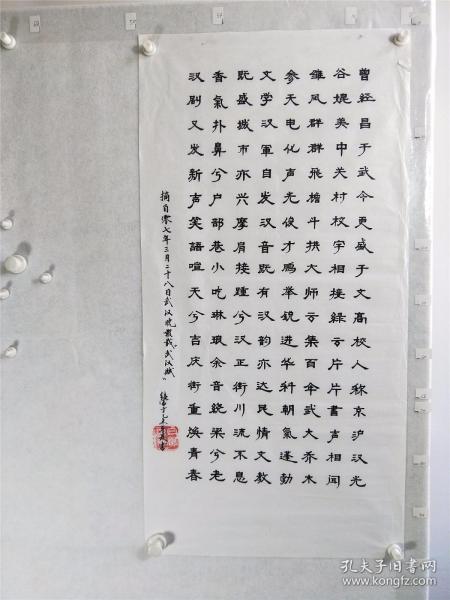 曾经昌于武今更盛于文高校人称京沪汉光
谷媲美中关村校宇相接绿云片片書声相闻
雏风群群飛檐斗拱大师云集百年武大乔木
参天电化声光俊才鹏举锐进华科朝氣逢勃
文学汉軍自发汉音既有汉韵亦达民情文教
既盛城市亦兴摩肩接踵兮汉正街川流不息
香氣扑鼻兮户部巷小吃琳琅余音绕梁兮老
汉剧又发新声笑語喧天兮吉庆街重焕青春
摘自零七年三月二十八日武汉晚报载"武汉賦"
孔夫子旧书网
www.kongfz.com